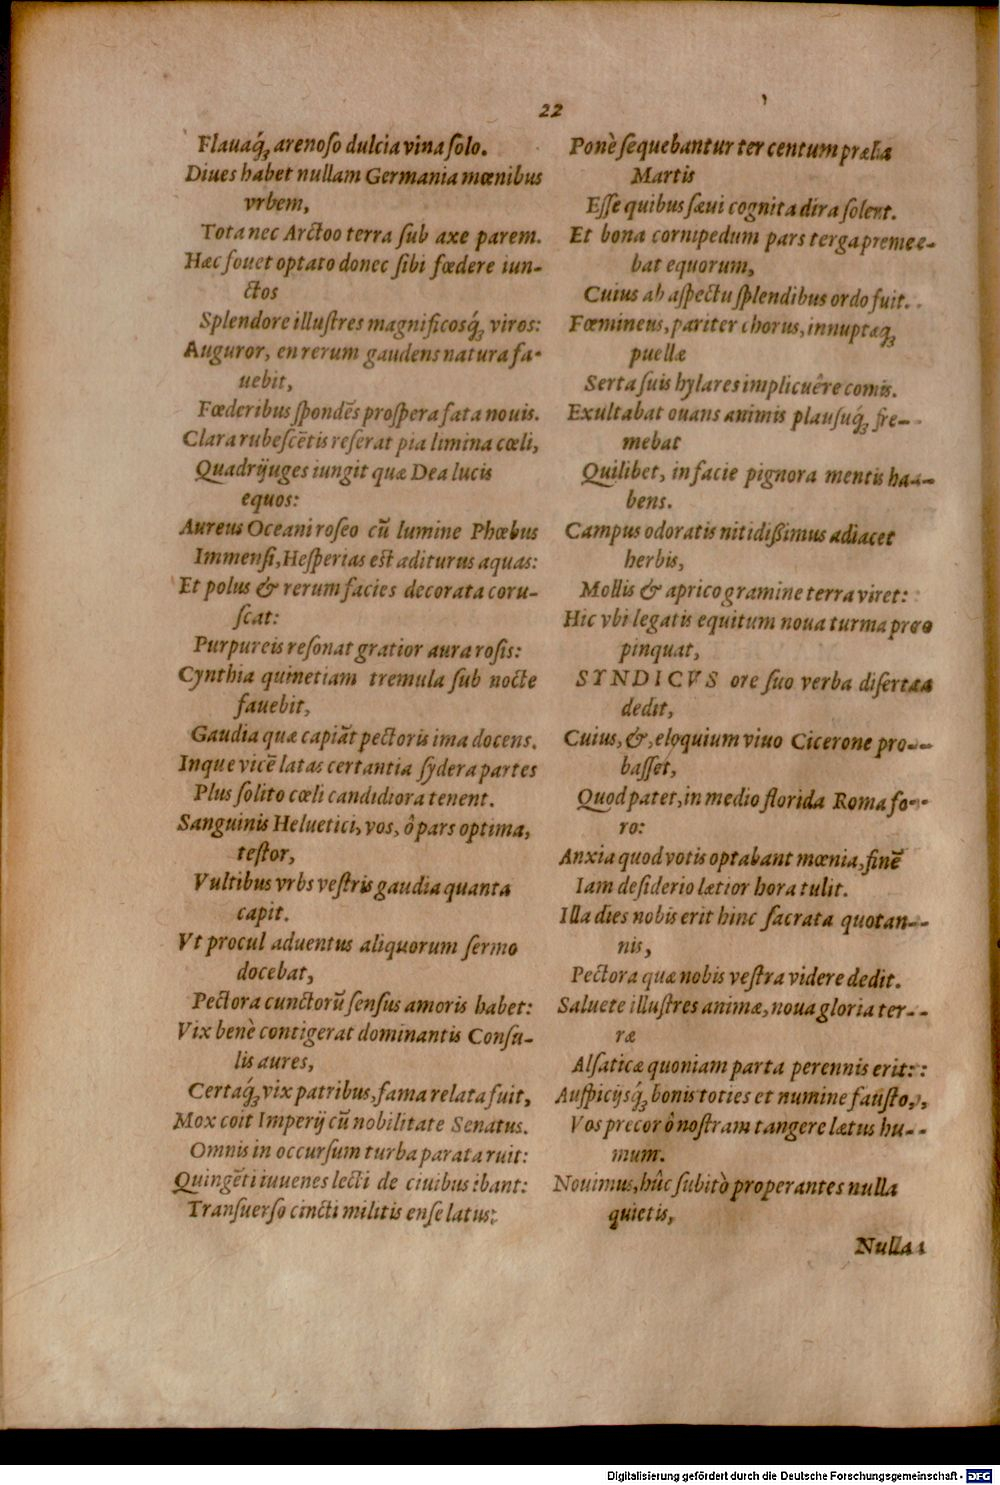 22
Flauaq́ꝫ arenoſo dulcia vina ſolo.
Diues habet nullam Germania mœnibus
vrbem,
Tota nec Arctoo terra ſub axe parem.
Hæc fouet optato donec ſibi fœdere iun-
ctos
Splendore illuſtres magnificosq́ꝫ viros:
Auguror, en rerum gaudens natura fa-
uebit,
Fœderibus ſpondẽs proſpera fata nouis.
Clara rubeſcẽtis reſerat pia limina cœli,
Quadrijuges iungit quæ Dea lucis
equos:
Aureus Oceani roſeo cũ lumine Phœbus
Immenſi, Heſperias eſt aditurus aquas:
Et polus & rerum facies decorata coru-
ſcat:
Purpureis reſonat gratior aura roſis:
Cynthia quinetiam tremula ſub nocte
fauebit,
Gaudia quæ capiãt pectoris ima docens.
Inque vicẽ latas certantia ſydera partes
Plus ſolito cœli candidiora tenent.
Sanguinis Heluetici, vos, ô pars optima,
teſtor,
Vultibus vrbs veſtris gaudia quanta
capit.
Vt procul aduentus aliquorum ſermo
docebat,
Pectora cunctorũ ſenſus amoris habet:
Vix benè contigerat dominantis Conſu-
lis aures,
Certaq́ꝫ vix patribus, fama relata fuit,
Mox coit Imperij cũ nobilitate Senatus.
Omnis in occurſum turba parata ruit:
Quingẽti iuuenes lecti de ciuibus ibant:
Tranſuerſo cincti militis enſe latus:
Ponè ſequebantur ter centum prælia
Martis
Eſſe quibus ſæui cognita dira ſolent.
Et bona cornipedum pars terga preme-
bat equorum,
Cuius ab aſpectu ſplendibus ordo fuit.
Fœmineus, pariter chorus, innuptæq́ꝫ
puellæ
Serta ſuis hylares implicuêre comis.
Exultabat ouans animis plauſuq́ꝫ fre-
mebat
Quilibet, in facie pignora mentis ha-
bens.
Campus odoratis nitidißimus adiacet
herbis,
Mollis & aprico gramine terra viret:
Hic vbi legatis equitum noua turma pro
pinquat,
SYNDICVS ore ſuo verba diſerta
dedit,
Cuius, &, eloquium viuo Cicerone pro-
baſſet,
Quod patet, in medio florida Roma fo-
ro:
Anxia quod votis optabant mœnia, finẽ
Iam deſiderio lætior hora tulit.
Illa dies nobis erit hinc ſacrata quotan-
nis,
Pectora quæ nobis veſtra videre dedit.
Saluete illuſtres animæ, noua gloria ter-
ræ
Alſaticæ quoniam parta perennis erit:
Auſpicijsq́ꝫ bonis toties et numine fauſto,
Vos precor ô noſtram tangere lætus hu-
mum.
Nouimus, hûc ſubitò properantes nulla
quietis,
Nulla
Digitalisierung gefördert durch die Deutsche Forschungsgemeinschaft - DFG